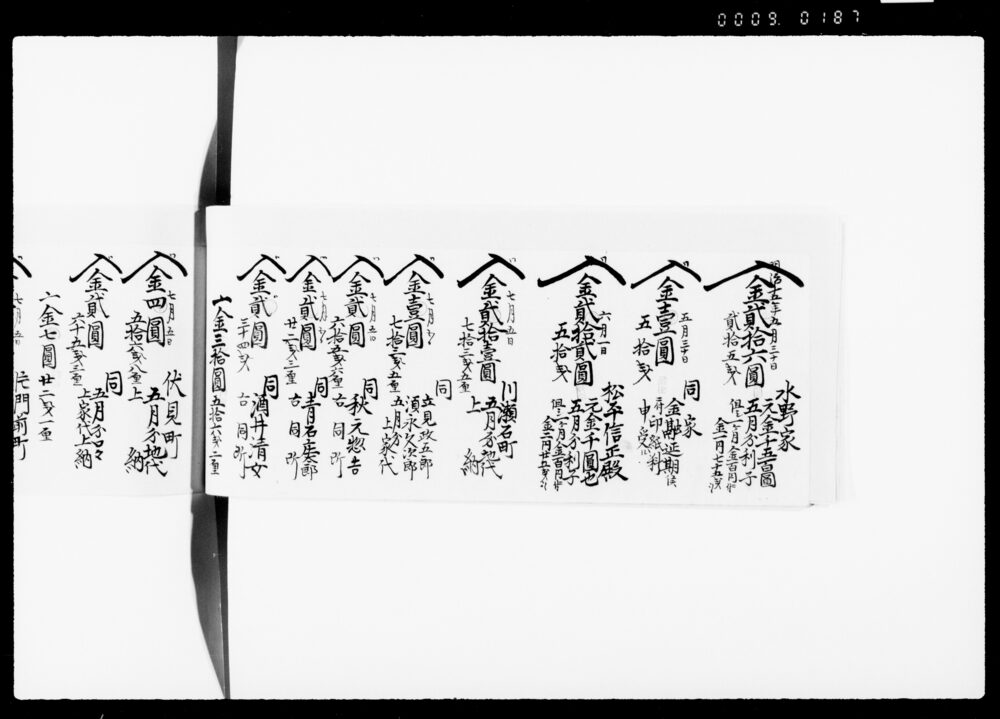 0009. 0187
明治十五年五月三十日
金貳拾六圓
貳拾五戋
水野家
元金千五百圓
五月分利子
但シ一ヶ月金百円ニ付
金一円七十五戋ツヽ
五月三十日
金壹圓
五拾戋
同家
金融延期候
申受
六月一日
金貳拾貳圓
五拾戋
松平信正殿
元金千圓也
五月分利子
但一ヶ月金百円ニ付
金二円廿五戋ツヽ
七月五日
金貳拾壹圓
七拾三戋五厘
川瀬石町
五月分地代
上納
金壹圓
七拾二戋五厘
同
立見政五郎
須永久次郎
五月分
上家代
七月五日
金貳圓
六拾五戋六厘
同
秋元惣吉
右同所
金貳圓
廿二戋三厘
同
青石庄太郎
右同所
金貳圓
三十四戋
同
酒井清女
右同所
〆金三拾圓五拾六戋二厘
七月五日
金四圓
五拾六戋八厘
伏見町
五月分地代
上納
金貳圓
六十五戋三厘
同
五月分
上家代上納
〆金七圓廿二戋一厘
七月五日
片門前町